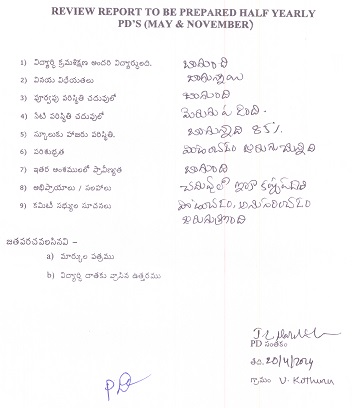 REVIEW REPORT TO BE PREPARED HALF YEARLY
PD'S (MAY & NOVEMBER)
1) విద్యార్థి క్రమశిక్షణ అందరి విద్యార్థులది. బాగుంది
2) వినయ విధేయతలు బాగున్నాయి
3) పూర్వపు పరిస్థితి చదువులో బాగుంది
4) నేటి పరిస్థితి చదువులో
5) స్కూలుకు హాజరు పరిస్థితి. బాగున్నది 85%
6) పరిశుభ్రత
7) ఇతర అంశములలో ప్రావీణ్యత బాగుంది
8) అభిప్రాయాలు / సలహాలు
9) కమిటి సభ్యుల సూచనలు
జతపరచవలసినవి –
a) మార్కుల పత్రము
b) విద్యార్థి దాతకు వ్రాసిన ఉత్తరము
PD సంతకం
తేది. 20/4/2024
గ్రామం V. Kothuru